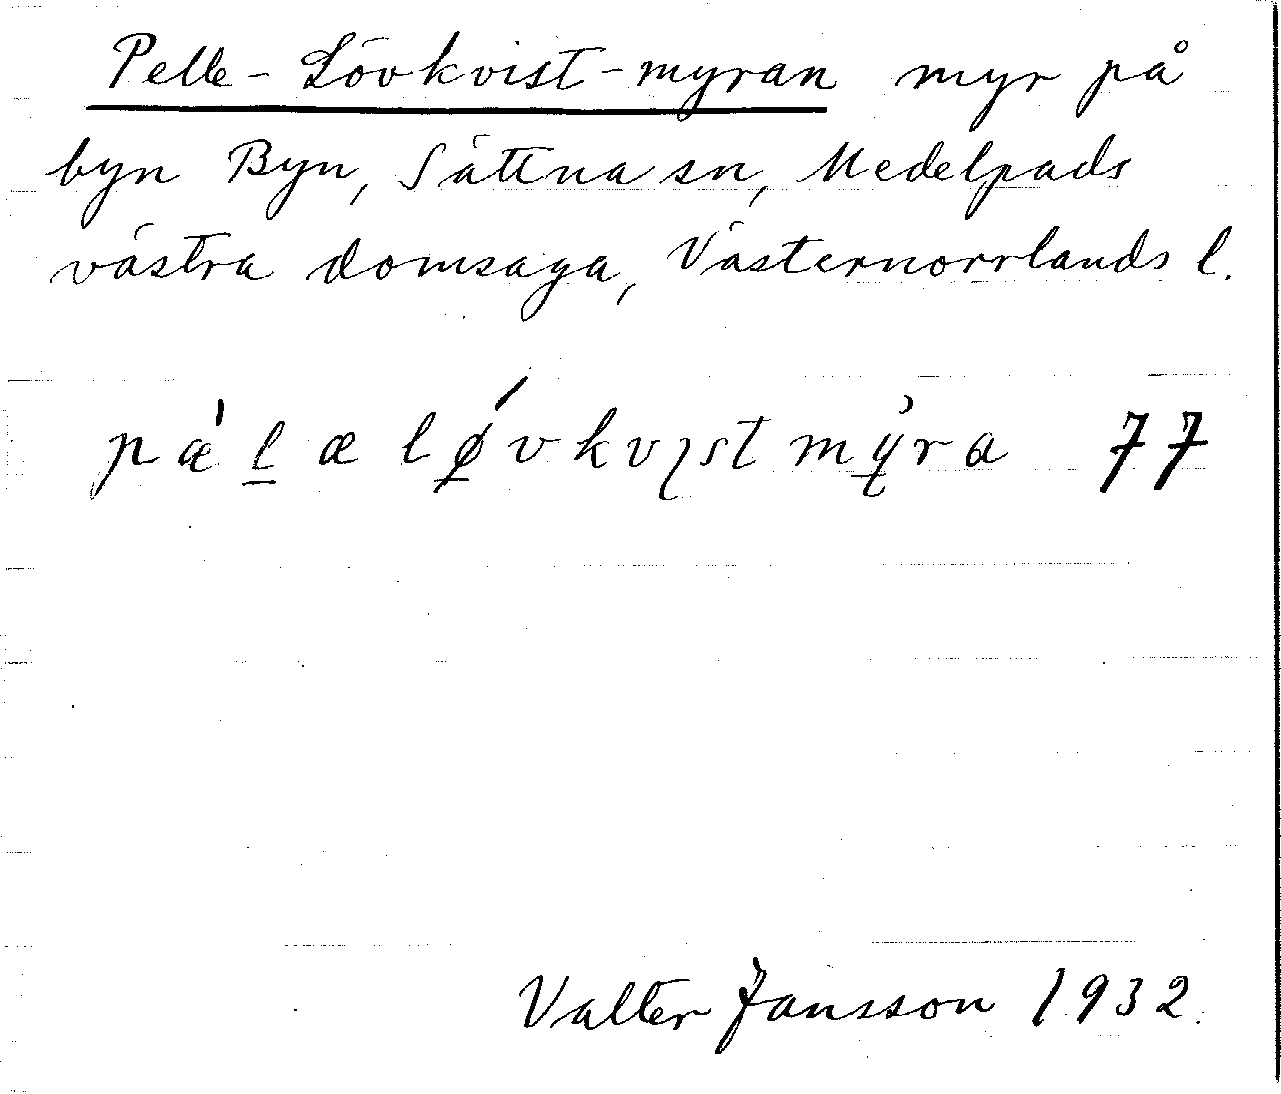 Pelle-Lövkvist-myran myr på
byn Byn, Sättna sn, Medelpads
västra domsaga, Västernorrlands l.
pæ̍l̲æ lǿ̲vkvıstmy̲̓ra 77
Valter Jansson 1932.